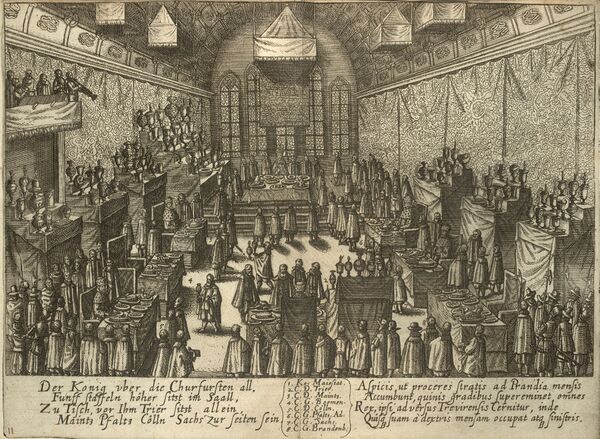 Der Konig vber die Churfursten all,
Funff staffeln höher sitzt im Saall,
Zu Tisch, vor Ihm Trier sitzt allein
Maintz Pfaltz Cölln Sachs zur seiten sein
1. Kay. Maiestat.
2. C. D. Trier.
3. C. D. Maintz.
4. C. G. Bohmen.
5. C. D. Cölln.
6. C. G. Pfaltz, Ad.
7. C. G. Sachs.
8. C. G. Brandenb.
Aspicis, ut proceres stratis ad Prandia mensis
Accumbunt, quinis gradibus supereminet, omnes
Rex, ipsi adversus Trevirensis Cernitur, inde
Quisq, suam a dextris mensam occupat atq, sinistris.
11